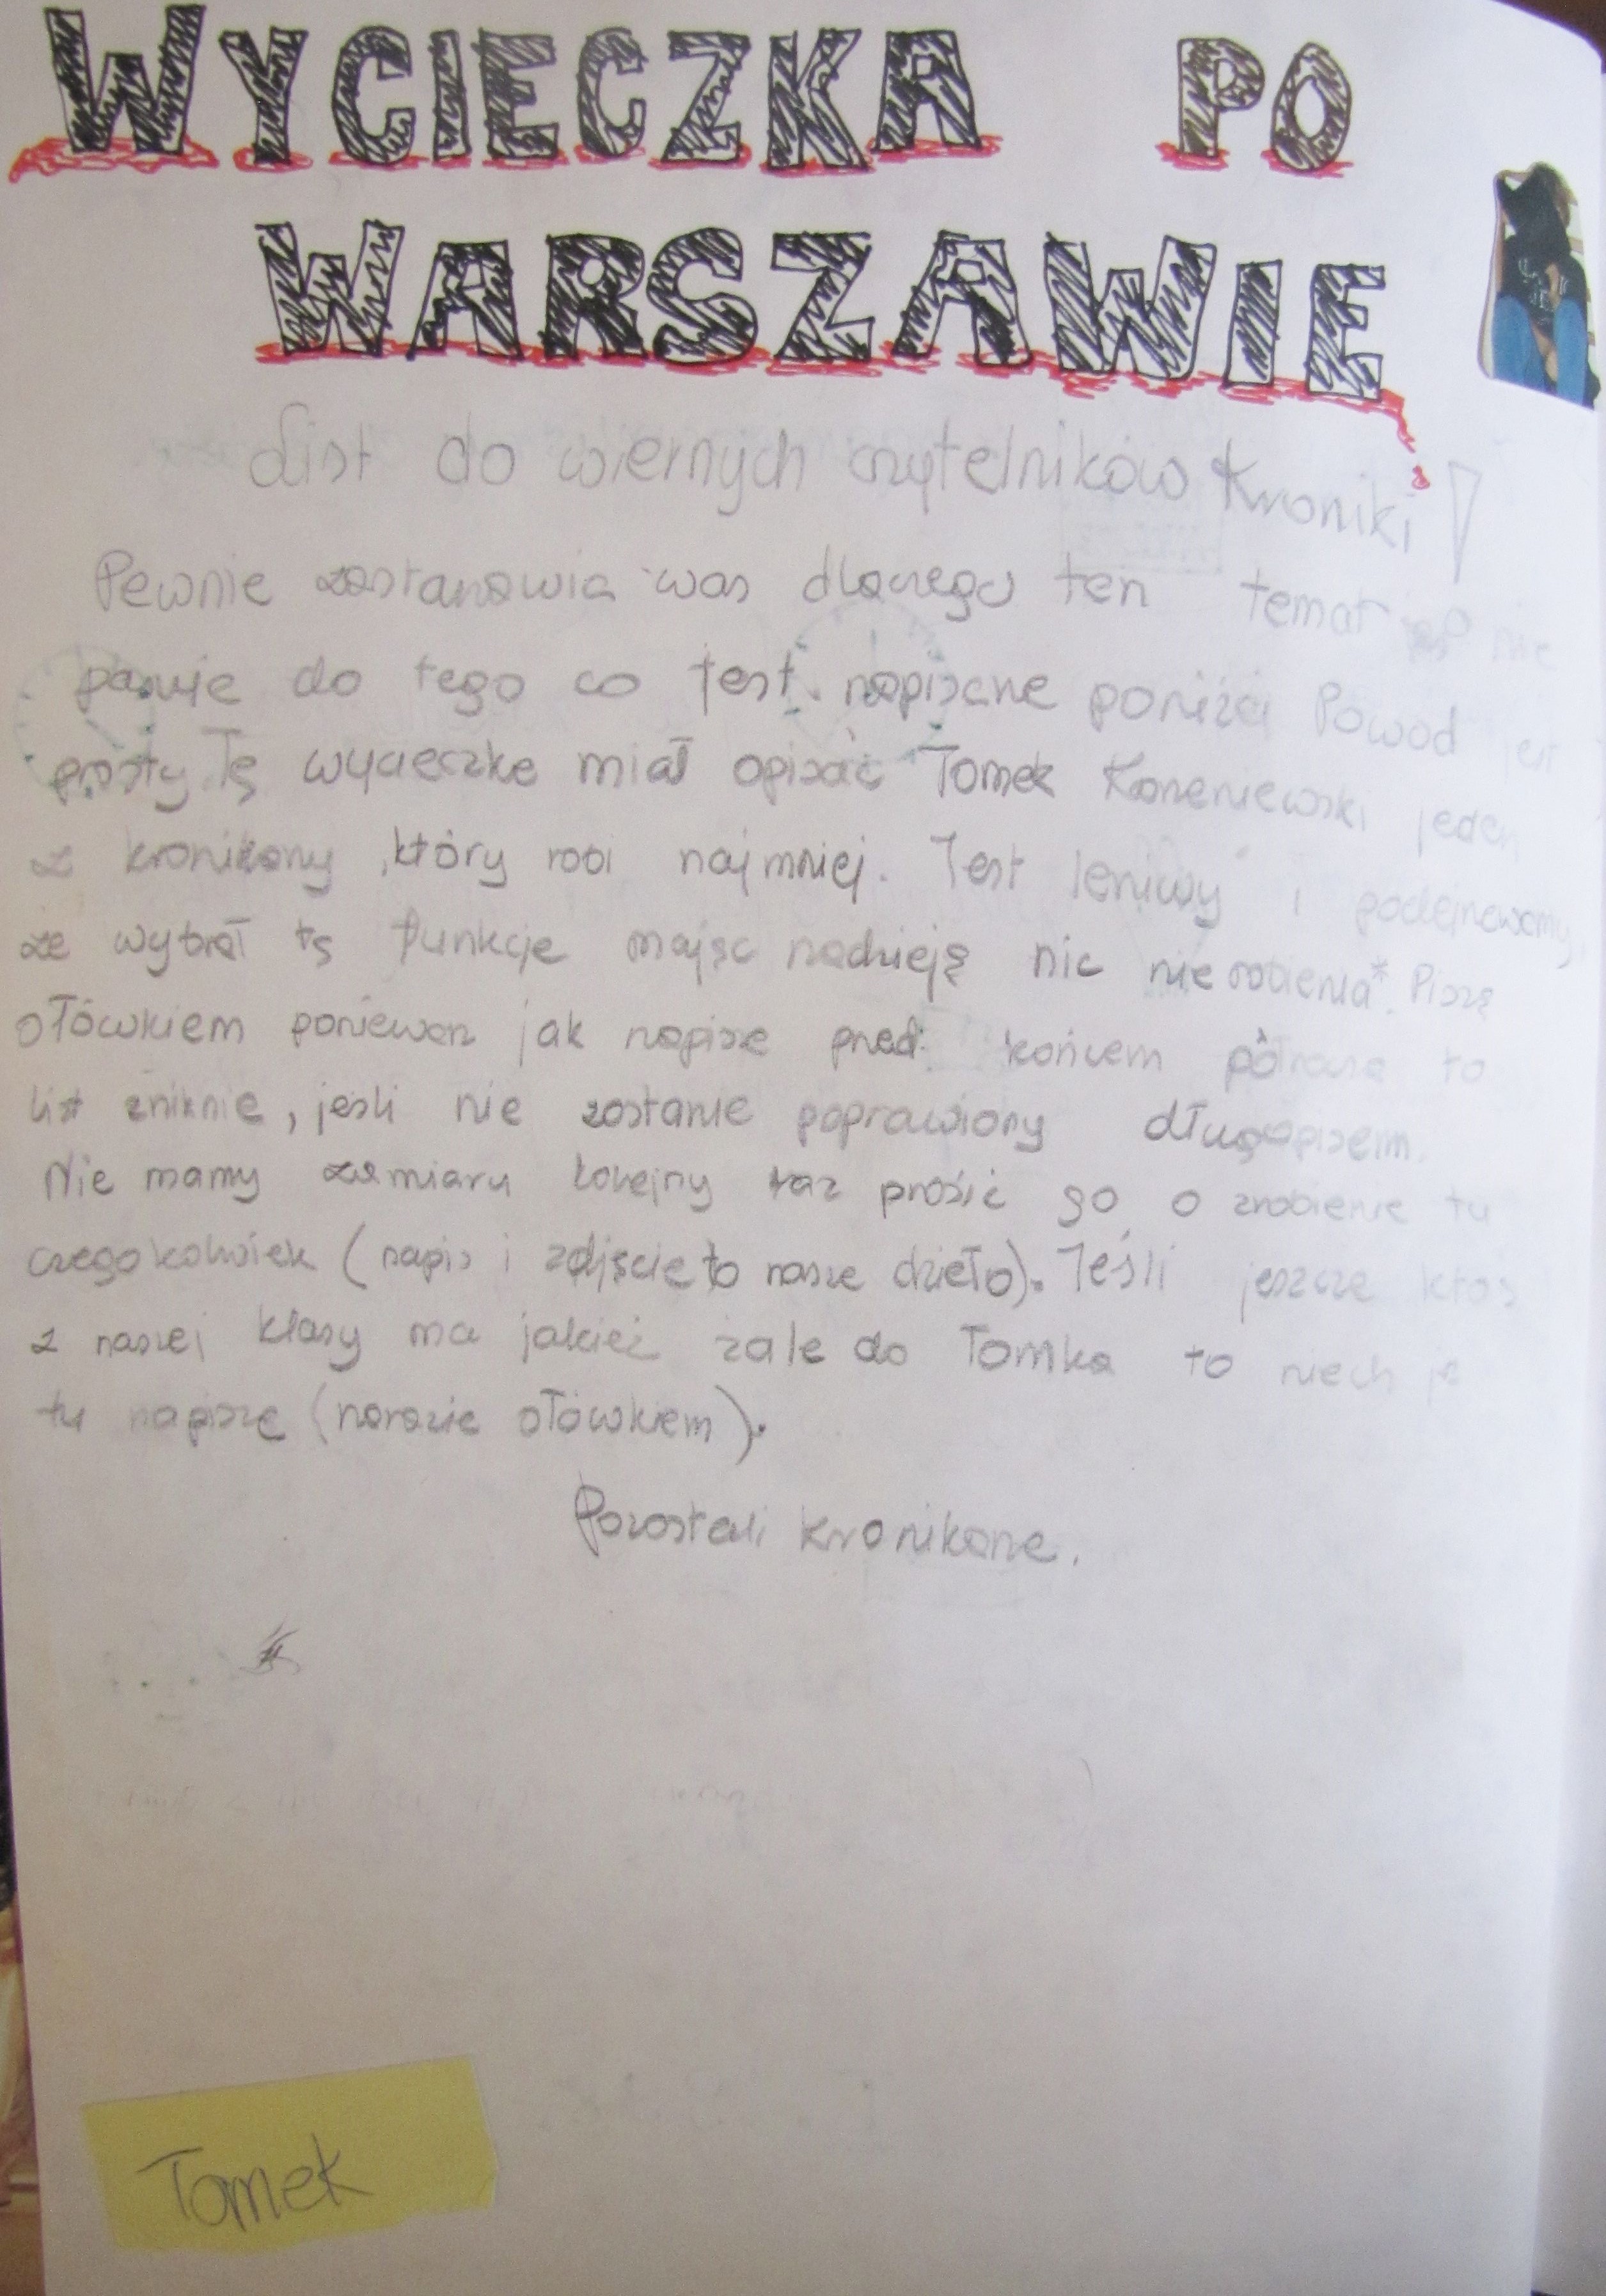 WYCIECZKA PO
WARSZAWIE
List do wiernych czytelników Kroniki!
Pewnie zastanawia was dlaczego ten temat nie
pasuje do tego co jest napisane poniżej Powód jest
prosty Tę wycieczke miał opisać Tomek Korzeniewski jeden
z kronikarzy, który robi najmniej. Jest leniwy i podejrzewamy,
że wybrał tę funkcje mając nadzieję nic nie robienia*. Piszę
ołówkiem ponieważ jak napisze przed końcem półrocza to
list zniknie, jeśli nie zostanie poprawiony długopisem.
Nie mamy zamiaru kolejny raz prosić go o zrobienie tu
czegokolwiek (napis i zdjęcie to nasze dzieło). Jeśli jeszcze ktoś
z naszej klasy ma jakieś żale do Tomka to niech je
tu napisze (narazie ołówkiem).
Pozostali kronikarze.
Tomek